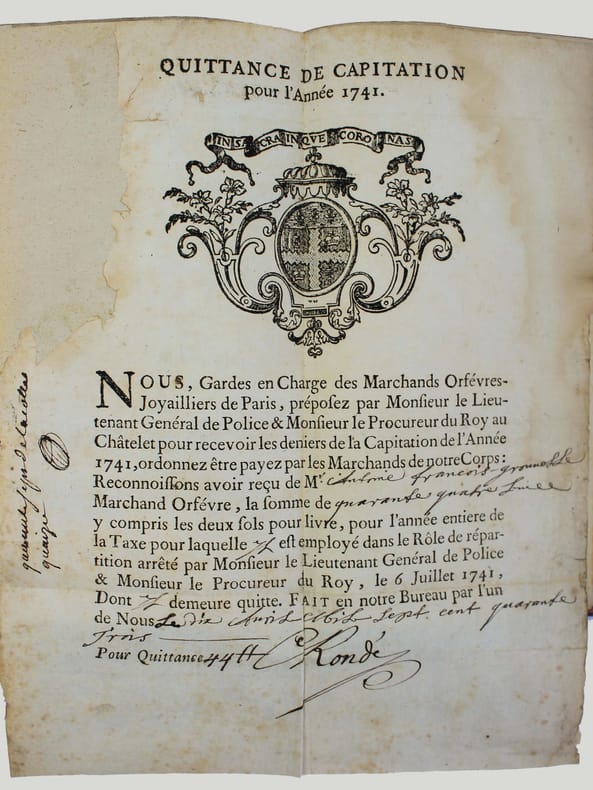 QUITTANCE DE CAPITATION
pour l'Année 1741.
IN SACRA INQUE CORONAS
NOUS, Gardes en Charge des Marchands Orfévres-
Joyailliers de Paris, préposez par Monsieur le Lieu-
tenant Général de Police & Monsieur le Procureur du Roy au
Châtelet pour recevoir les deniers de la Capitation de l'Année
1741, ordonnez être payez par les Marchands de notre Corps:
Reconnoissons avoir reçu de Mr Antoine francois
Marchand Orfévre, la somme de quarante quatre Livre
y compris les deux sols pour livre, pour l'année entiere de
la Taxe pour laquelle il est employé dans le Rôle de répar-
tition arrêté par Monsieur le Lieutenant Général de Police
& Monsieur le Procureur du Roy, le 6 Juillet 1741,
Dont il demeure quitte. FAIT en notre Bureau par l'un
de Nous Le dix Avril Mil Sept cent quarante
trois
Pour Quittance 44tt Rondé